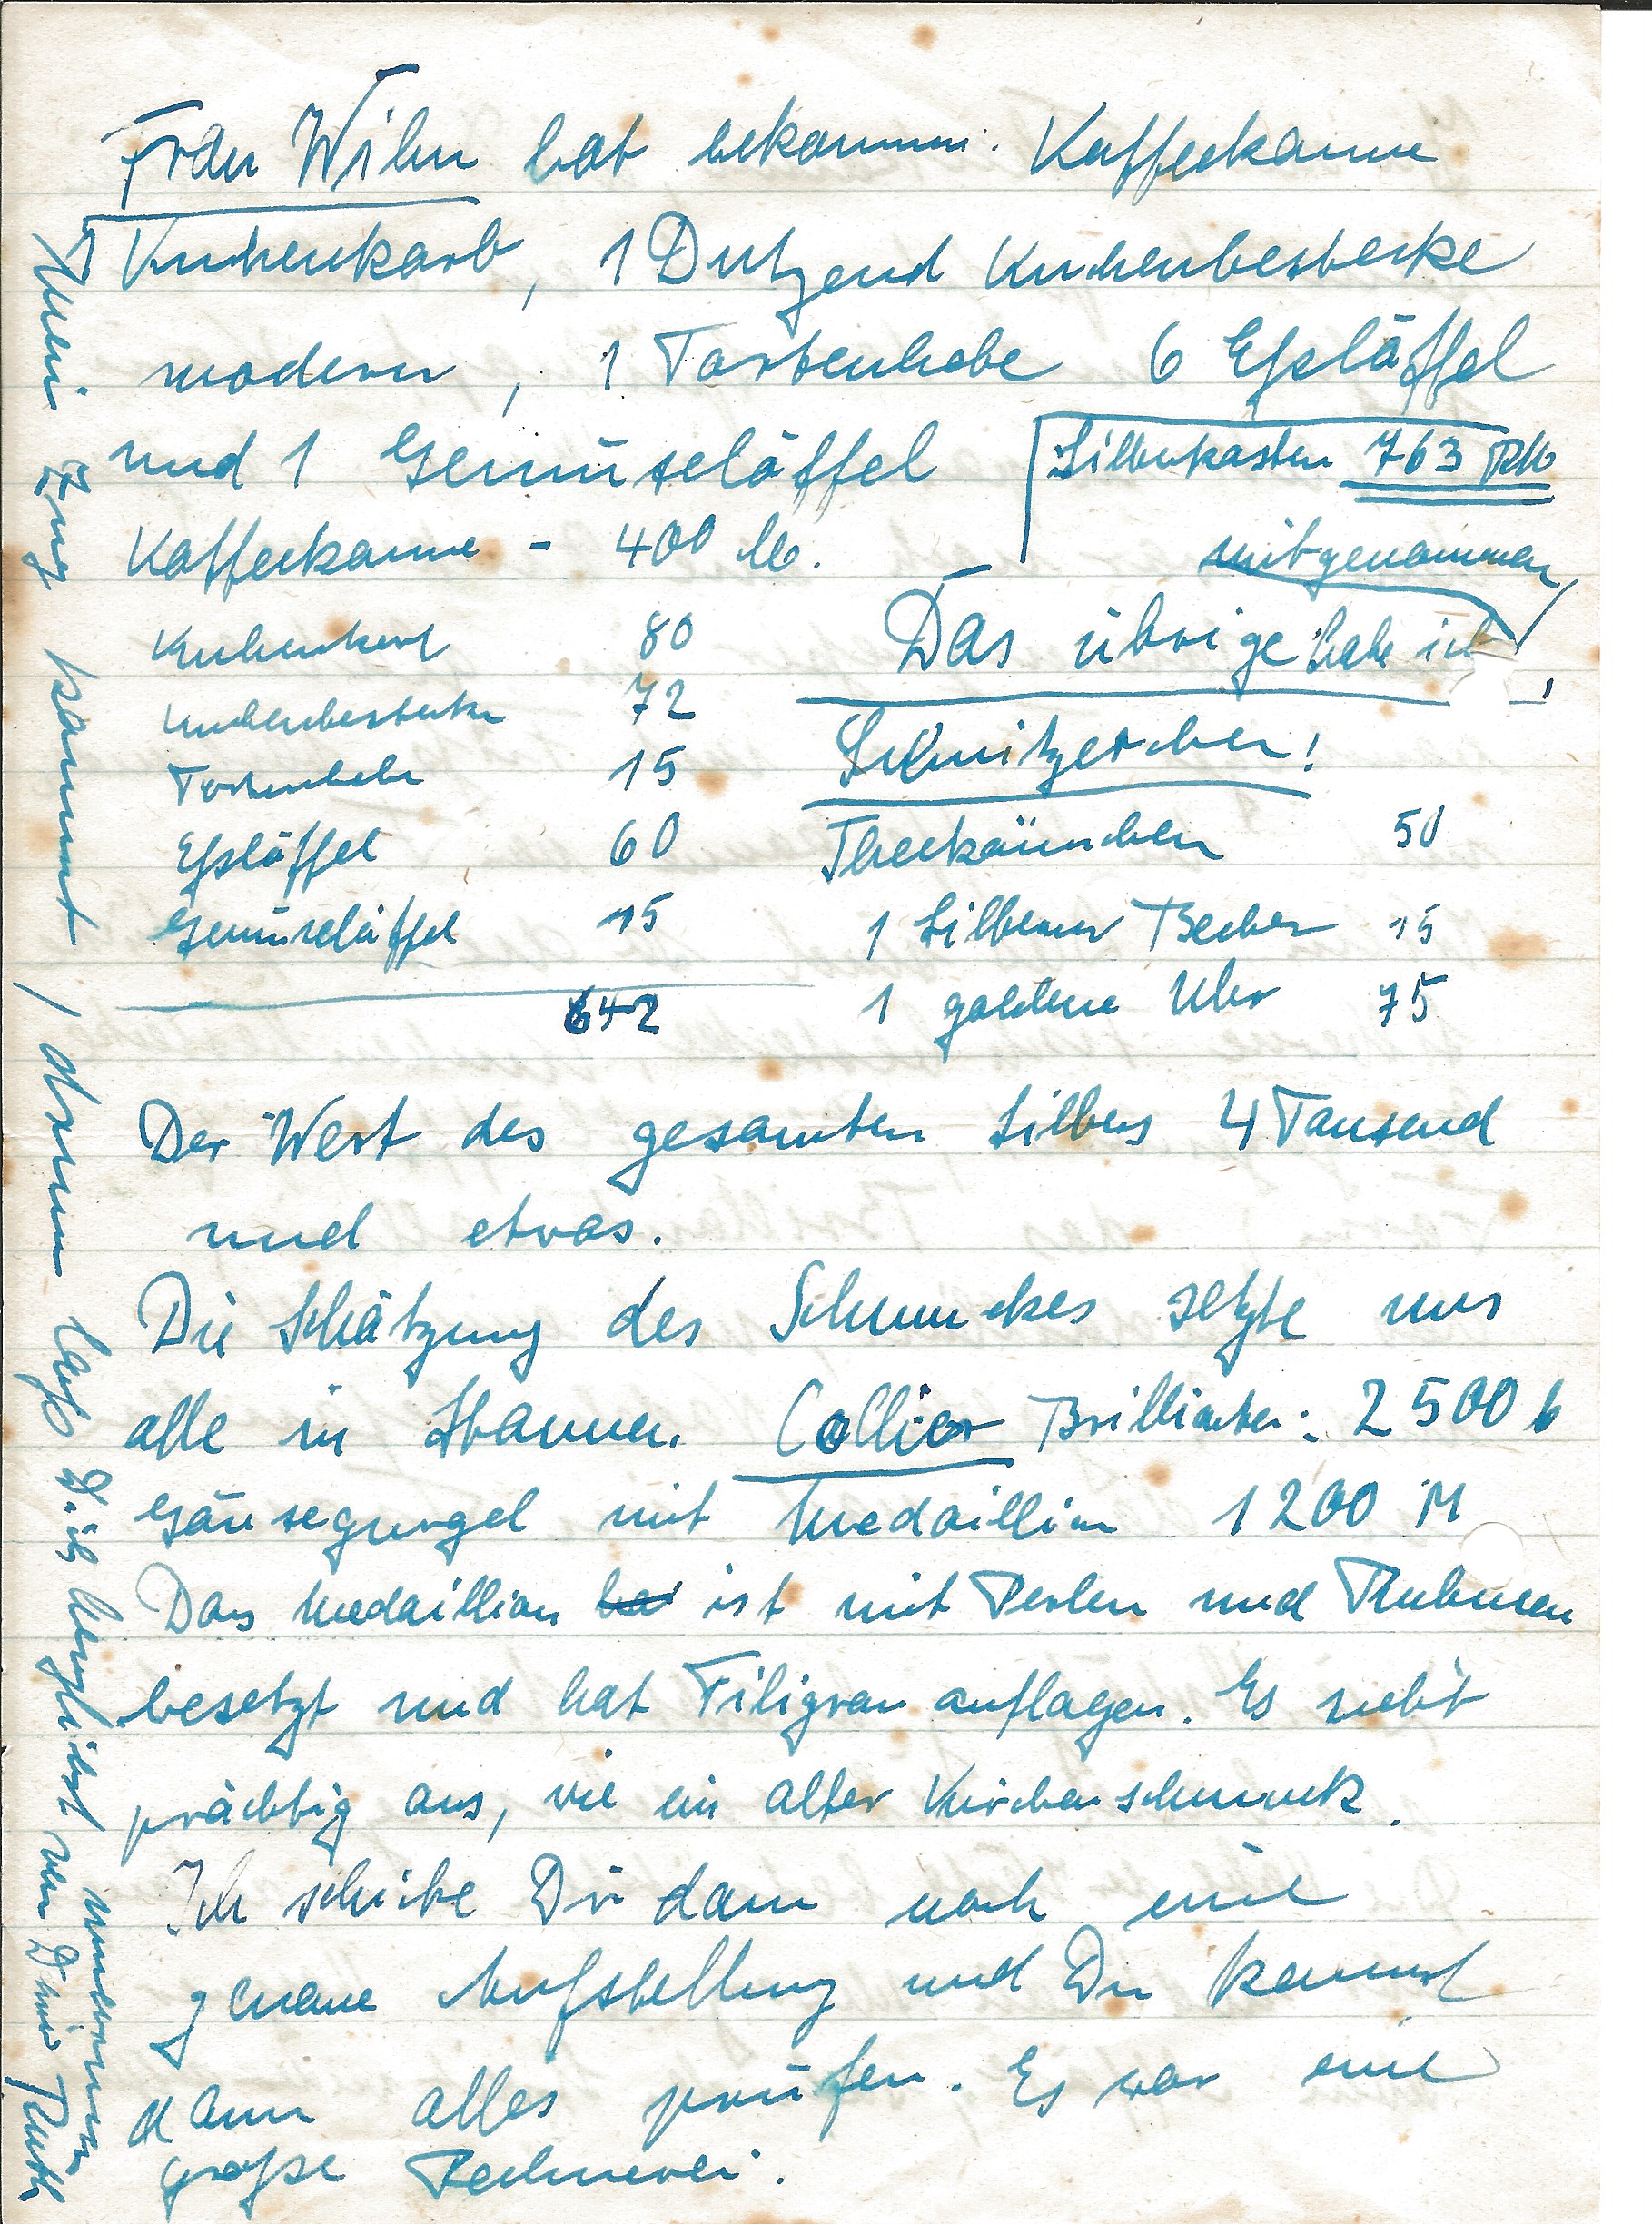 Frau Wilm hat bekommen: Kaffeekanne
Kuchenkorb, 1 Dutzend Kuchenbestecke
modern, 1 Tortenhebe 6 Eßlöffel
und 1 Gemüselöffel
Silberkasten 763 RM
Kaffeekanne - 400 M.
Kuchenkorb 80
Kuchenbestecke 72
Tortenhebe 15
Eßlöffel 60
Gemüselöffel 15
642
mitgenommen
Das übrige habe ich
!
Teekännchen 50
1 Silberner Becher 15
1 goldene Uhr 75
Der Wert des gesamten Silbers 4 Tausend
und etwas.
Die Schätzung des Schmuckes setzte uns
alle in Staunen. Collier Brillianten: 2500
Gänsegurgel mit Medaillion 1200 M
Das Medaillion ist mit Perlen und Rubinen
besetzt und hat Filigranauflagen. Es sieht
prächtig aus, wie ein alter Kirchenschmuck.
Ich schicke Dir dann noch eine
genaue Aufstellung und Du kannst
dann alles prüfen. Es war eine
große Rechnerei.
Mein Zug kommt / drum laß Dich herzlichst umarmen
von Deiner Ruth